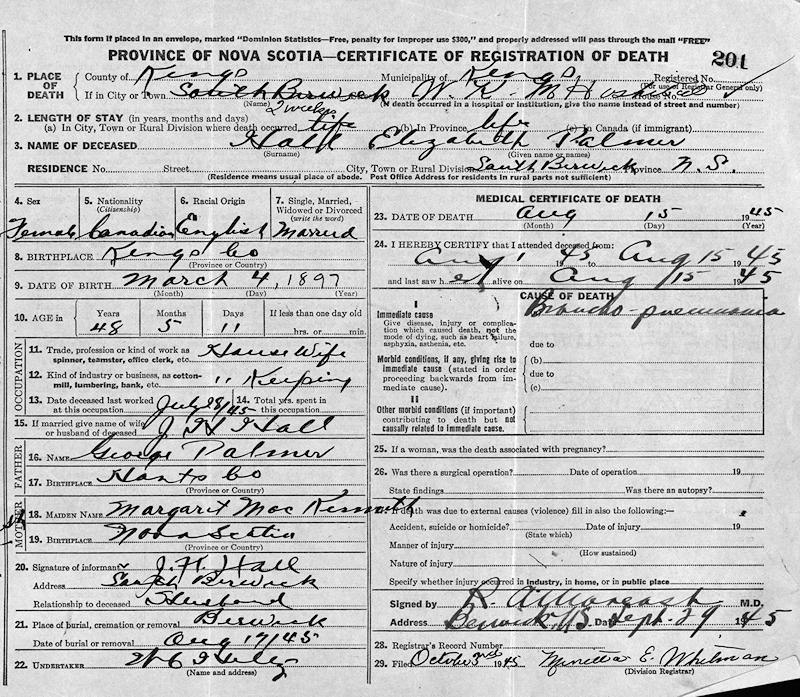 This form if placed in an envelope, marked "Dominion Statistics—Free, penalty for improper use $300," and properly addressed will pass through the mail "FREE"
PROVINCE OF NOVA SCOTIA—CERTIFICATE OF REGISTRATION OF DEATH 201
1. PLACE OF DEATH County of Kings Municipality of Kings Registered No.
(For use of Registrar General only)
If in City or Town South Berwick W. K. M. Hospital House No.
(Name) (If death occurred in a hospital or institution, give the name instead of street and number)
2. LENGTH OF STAY (in years, months and days) 2 weeks
(a) In City, Town or Rural Division where death occurred life (b) In Province life (c) In Canada (if immigrant)
3. NAME OF DECEASED Hall Elizabeth Palmer
(Surname) (Given name or names)
RESIDENCE No. Street City, Town or Rural Division South Berwick Province N.S.
(Residence means usual place of abode. Post Office Address for residents in rural parts not sufficient)
4. Sex Female
5. Nationality (Citizenship) Canadian
6. Racial Origin English
7. Single, Married, Widowed or Divorced (write the word) Married
8. BIRTHPLACE Kings Co
(Province or Country)
9. DATE OF BIRTH March 4, 1897
(Month) (Day) (Year)
10. AGE in Years Months Days If less than one day old
48 5 11 hrs. or min.
OCCUPATION
11. Trade, profession or kind of work as spinner, teamster, office clerk, etc. House Wife
12. Kind of industry or business, as cotton-mill, lumbering, bank, etc. " Keeping
13. Date deceased last worked at this occupation July 28/45 14. Total yrs. spent in this occupation
15. If married give name of wife or husband of deceased J. H. Hall
FATHER
16. NAME George Palmer
17. BIRTHPLACE Hants Co
(Province or Country)
MOTHER
18. MAIDEN NAME Margaret Mac Kenneth
19. BIRTHPLACE Nova Scotia
(Province or Country)
20. Signature of informant J. H. Hall
Address South Berwick
Relationship to deceased Husband
21. Place of burial, cremation or removal Berwick
Date of burial or removal Aug 17/45
22. UNDERTAKER
(Name and address)
MEDICAL CERTIFICATE OF DEATH
23. DATE OF DEATH Aug 15 1945
(Month) (Day) (Year)
24. I HEREBY CERTIFY that I attended deceased from:
Aug 1 1945 to Aug 15 1945
and last saw her alive on Aug 15 1945
CAUSE OF DEATH
I
Immediate cause Broncho-pneumonia
Give disease, injury or complication which caused death, not the mode of dying, such as heart failure, asphyxia, asthenia, etc.
due to
Morbid conditions, if any, giving rise to immediate cause (stated in order proceeding backwards from immediate cause).
(b)
due to
(c)
II
Other morbid conditions (if important) contributing to death but not causally related to immediate cause.
25. If a woman, was the death associated with pregnancy?
26. Was there a surgical operation? Date of operation 19
State findings Was there an autopsy?
If death was due to external causes (violence) fill in also the following:—
Accident, suicide or homicide? Date of injury 19
(State which)
Manner of injury
(How sustained)
Nature of injury
Specify whether injury occurred in industry, in home, or in public place
Signed by M.D.
Address Berwick N.S. Date Sept. 29 1945
28. Registrar's Record Number
29. Filed October 3rd 1945 E. Whitman
(Division Registrar)